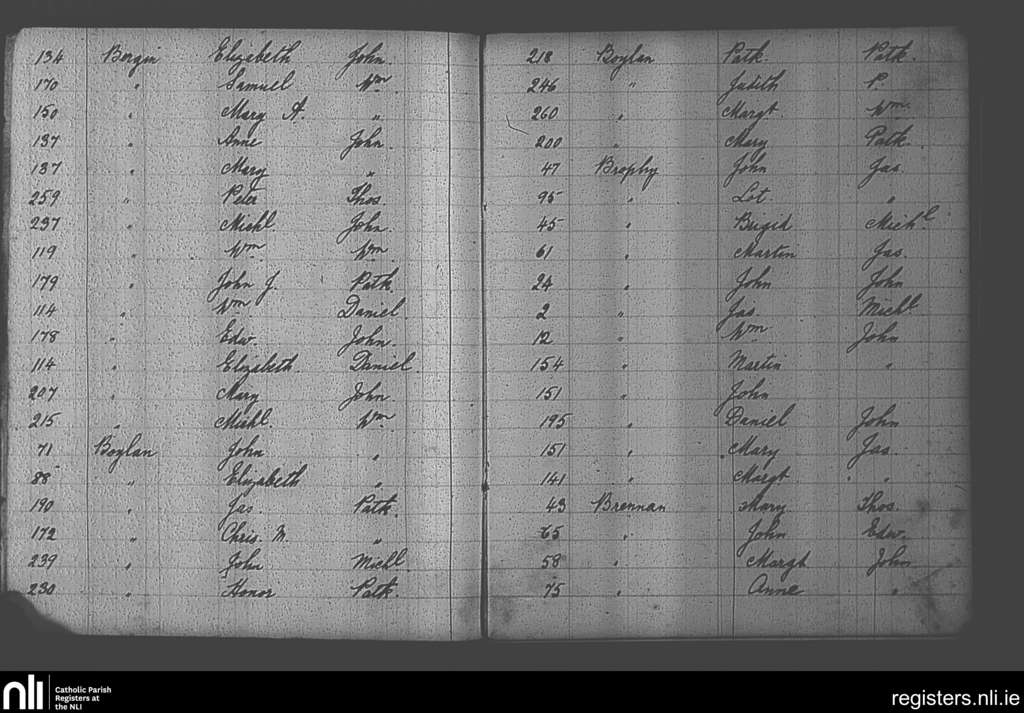 134 Bergin Elizabeth John.
170 " Samuel Wm
150 " Mary A. "
137 " Anne John.
137 " Mary "
259 " Peter Thos.
237 " Michl. John.
119 " Wm Wm
179 " John J. Patk.
114 " Wm Daniel.
178 " Edw. John.
114 " Elizabeth. Daniel.
207 " Mary John.
215 " Michl. Wm
71 Boylan John "
88 " Elizabeth "
190 " Jas. Patk.
172 " Chris. M. "
239 " John Michl.
230 " Honor Patk.
218 Boylan Patk. Patk.
246 " Judith P.
260 " Margt Wm
200 " Mary Patk.
47 Brophy John Jas.
95 " Lot. "
45 " Brigid Michl.
61 " Martin Jas.
24 " John John
2 " Jas. Michl
12 " Wm John
154 " Martin "
151 " John
195 " Daniel John
151 " Mary Jas.
141 " Margt "
43 Brennan Mary Thos.
65 " John Edw.
58 " Margt John
75 " Anne "
nli Catholic Parish
Registers at
the NLI
registers.nli.ie